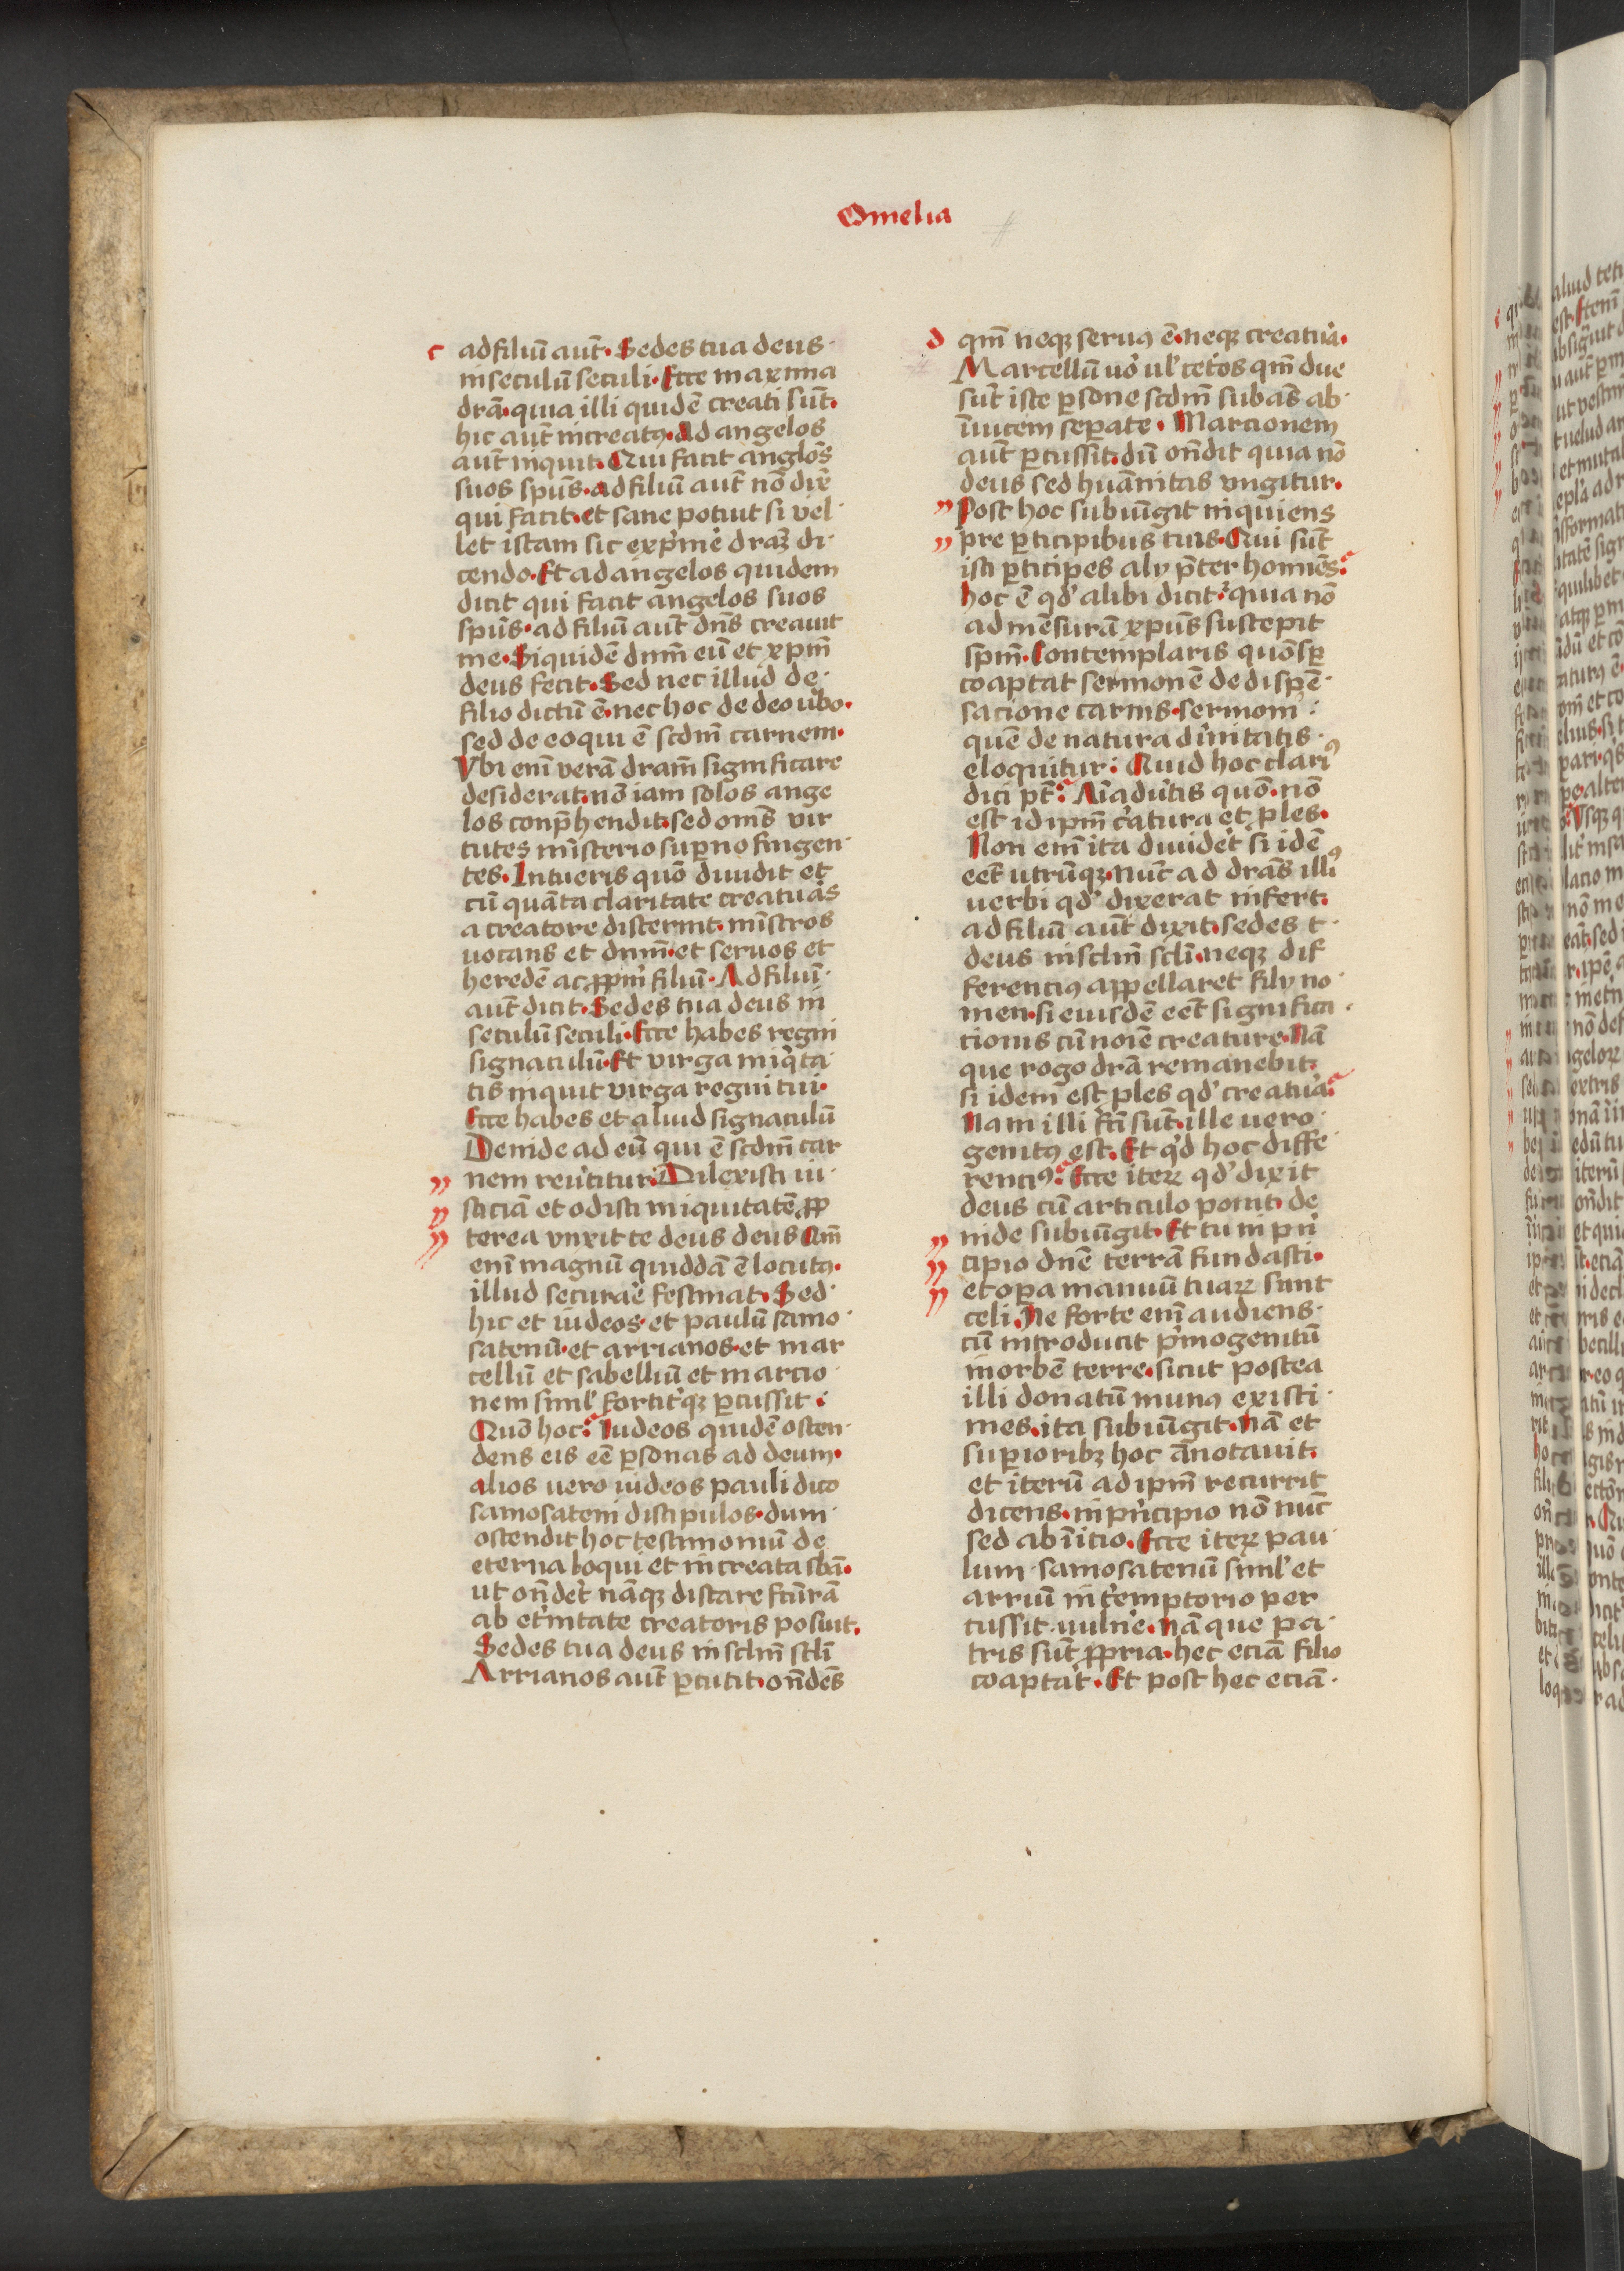 Omelia
c ad filiū aut̄. Sedes tua deus
in seculū seculi. Ecce maxima
drā. quia illi quidē creati sūt.
hic aut̄ increatꝯ. Ad angelos
aut̄ inquit. Qui facit anglo̅s
suos spūs. ad filiū aut̄ nō dix̄
qui facit. et sane potuit si vel
let istam sic exp̄me̅ draꝫ di
cendo. Et ad angelos quidem
dicit qui facit angelos suos
spūs. ad filiū aut̄ dn̄s creauit
me. Siquidē dnm̄ eū et xpm̄
deus fecit. Sed nec illud de
filio dictū ē. nec hoc de deo ūbo.
sed de eo qui ē scdm̄ carnem.
Vbi enī verā dram̄ significare
desiderat. nō iam solos ange
los conp̄hendit. sed om̄s vir
tutes mīsterio suꝑno fingen
tes. Intueris quō diuidit et
cū quāta claritate creatuᵃs
a creatore discernit. mīstros
uocans et dnm̄. et seruos et
heredē ac ꝓpm̄ filiū. Ad filiū
aut̄ dicit. Sedes tua deus in
seculū seculi. Ecce habes regni
signaculū. Et virga iniq̄ta
tis inquit virga regni tui.
Ecce habes et aliud signaculū
Deinde ad eū qui ē scdm̄ car
nem reūtitur. Dilexisti iu
sticiā et odisti iniquitatē ꝓp
terea vnxit te deus deus Qm̄
enī magnū quiddā ē locutꝯ.
illud securaᵉ festinat. Sed
hic et iudeos. et paulū samo
satenū. et arrianos. et mar
cellū et sabelliū et marcio
nem simlꝰ fortitᵉqꝫ ꝑcussit.
Quō hoc? Iudeos quidē osten
dens eis eē ꝑsonas ad deum.
alios uero iudeos pauli dico
samosateni discipulos. dum
ostendit hoc testimoniū de
eterna loqui et increata sbā.
ut on̄deret nāqꝫ distare fcūrā
ab et̄nitate creatoris posuit.
Sedes tua deus in sclm̄ scli̅
Arrianos aut̄ ꝑcutit. on̄dēs
d qm̄ neqꝫ seruꝯ ē. neqꝫ creatuᵃ.
Marcellū uᵒ ulꝰ cet̄os qm̄ due
sūt iste ꝑsone scdm̄ subāš ab
īuicem seꝑate. Marcionem
aut̄ ꝑcussit. dū on̄dit quia nō
deus sed huānitas vngitur.
Post hoc subiūgit inquiens
pre ꝑticipibus tuis. Qui sūt
isti ꝑticipes alij p̄ter homīes?
hoc ē qdꝰ alibi dicit. quia nō
ad mēsurā xpūs suscepit
spm̄. Contemplaris quō sꝑ
coaptat sermonē de dispē
sacione carnis. sermoni
quē de natura diuinitatis
eloquitur. Quid hoc clariꝰ
dici pt̄? Aīaduᵉtis quō. nō
est id ipm̄ cᵉatura et ples.
Non enī ita diuidēt si idē
eēt utrūqꝫ. Nūc ad drāš illiꝰ
uerbi qdꝰ dixerat infert.
ad filiū aut̄ dixit. sedes t
deus in sclm̄ scli̅. neqꝫ dif
ferenciꝯ appellaret filij no
men. si eiusdē eēt significa
tionis cū noīe creature. Nā
que rogo drā remanebit
si idem est ples qdꝰ creatuᵃ?
Nam illi fc̄i sūt. ille uero
genitꝯ est. Et qꝰd hoc diffe
renciꝯ? Ecce iteꝝ qdꝰ dixit
deus cū articulo ponit. de
inde subiūgit. Et tu in pⁱn
cipio dn̄e terrā fundasti.
et oꝑa manuū tuaꝝ sunt
celi. Ne forte enī audiens
cū introducit pⁱmogenitū
in orbē terre. sicut postea
illi donatū munꝯ existi
mes. ita subiūgit. Nā et
suꝑioribꝫ hoc ānotauit.
et iterū ad ipm̄ recurrit
dicens. in pⁱncipio nō nūc
sed ab īitio. Ecce iteꝝ pau
lum samosatenū simlꝰ et
arriū int̄emptorio per
cussit uulnᵉe. Nā que pa
tris sūt ꝓpria. hec eciā filio
coaptat. Et post hec eciā